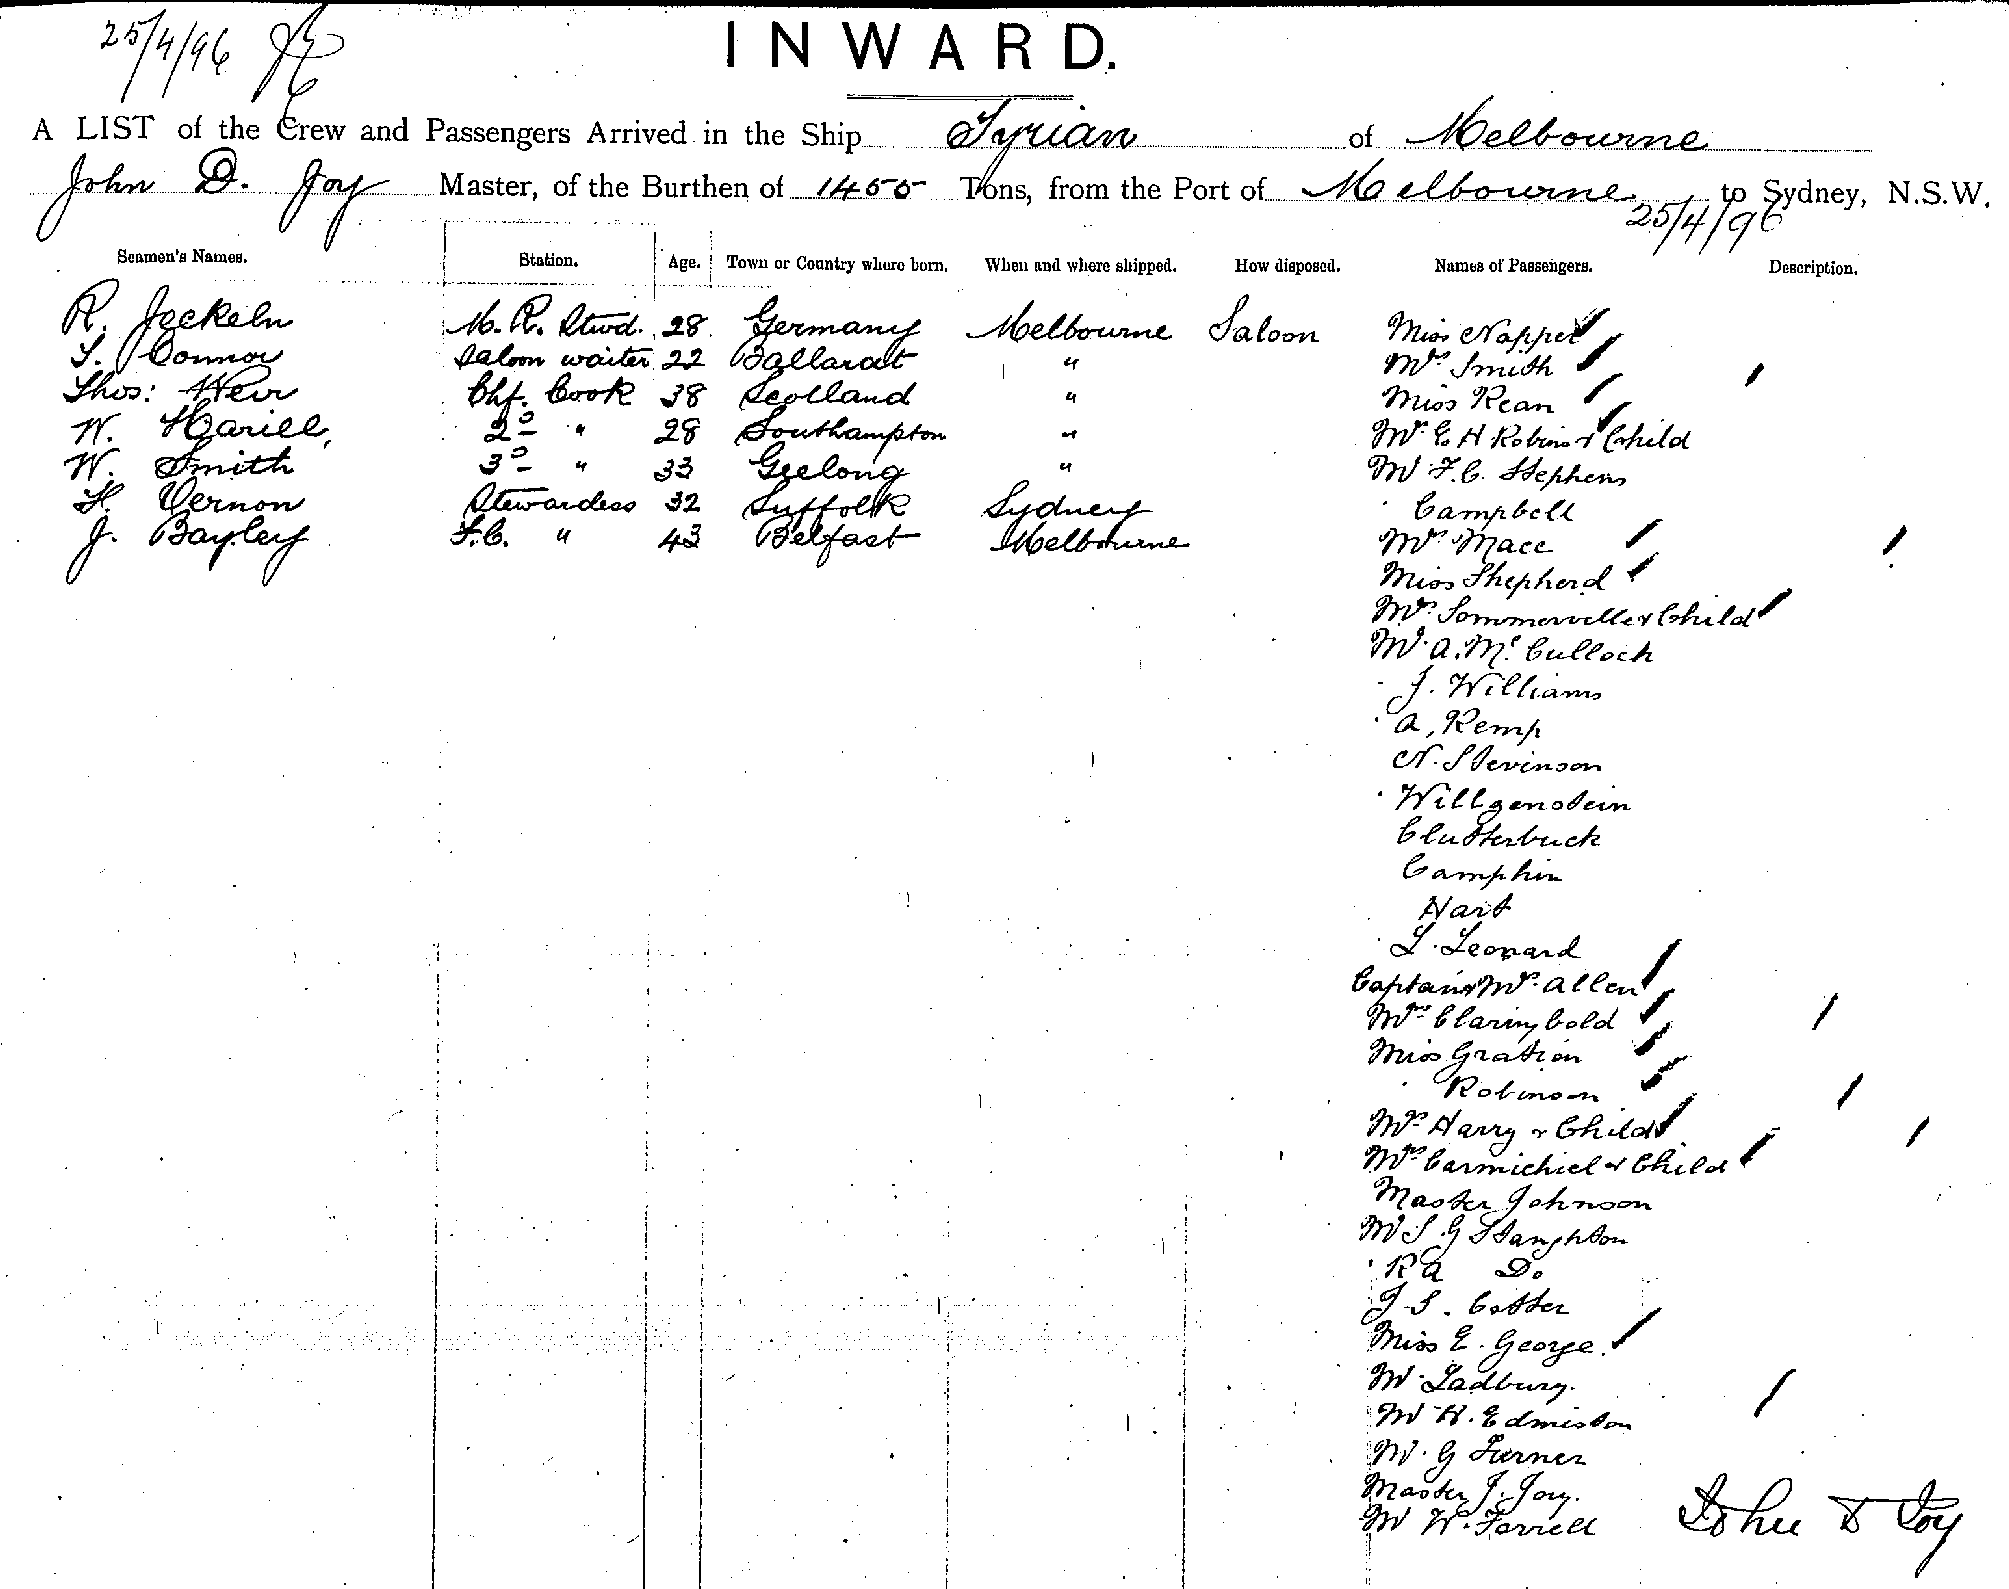 25/4/96
INWARD.
A LIST of the Crew and Passengers Arrived in the Ship Tyrian of Melbourne
John D. Joy Master, of the Burthen of 1455 Tons, from the Port of Melbourne to Sydney, N.S.W.
25/4/96
Seamen's Names. Station. Age. Town or Country where born. When and where shipped. How disposed. Names of Passengers. Description.
R. Jeckeln M. R. Stwd. 28 Germany Melbourne Saloon Miss Napper
T. Connor Saloon waiter 22 Ballarat " Mrs Smith
Thos: Weir Chf. Cook 38 Scotland " Miss Kean
W. Harill, 2D " 28 Southampton " Mr E H Robins & Child
W. Smith 3D " 33 Geelong " Mr F. C. Stephens
H. Vernon Stewardess 32 Suffolk Sydney Campbell
J. Bayley F.C. " 43 Belfast Melbourne Mrs Mace
Miss Shepherd
Mrs Sommerville & Child
Mr A. Mc Culloch
J. Williams
A. Kemp
N. Stevinson
Willgenstein
Clutterbuck
Camphin
Hart
L. Leonard
Captain & Mrs Allen
Mrs Claringbold
Miss Gration
Robinson
Mrs Harry & Child
Mrs Carmichiel & Child
Master Johnson
Mr S G Staughton
R A Do
J S. Cotter
Miss E. George.
Mr Ladbury.
Mr H. Edmiston
Mr G Turner
Master J. Joy.
Mr W. Farrell
John D Joy